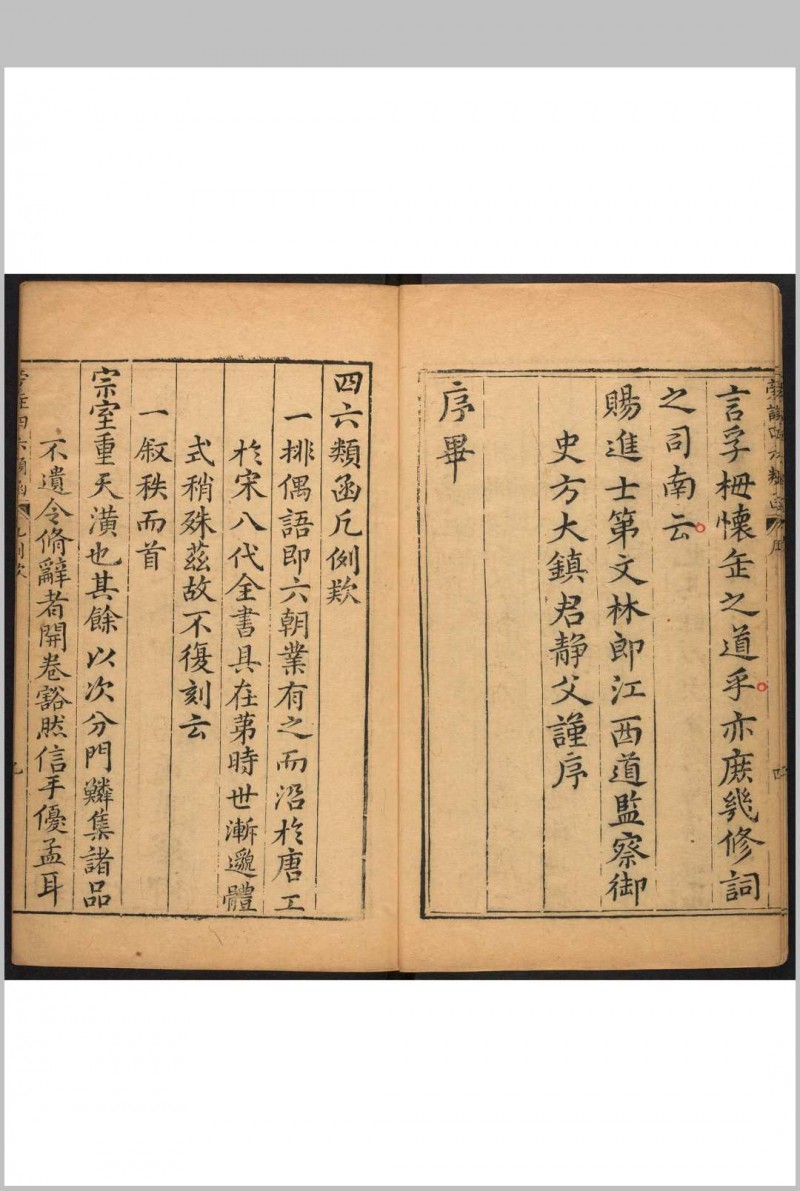 言孚栂懷缶之道乎亦庶幾修詞
之司南云
賜進士第文林郎江西道監察御
史方大鎮君靜父謹序
序畢
四六類函凡例欵
一排偶語即六朝業有之而沿於唐工
於宋八代全書具在苐時世漸邈體
式稍殊茲故不復刻云
一叙秩而首
宗室重天潢也其餘以次分門鱗集諸品
不遺令脩辭者開卷豁然信手優孟耳
四六類函